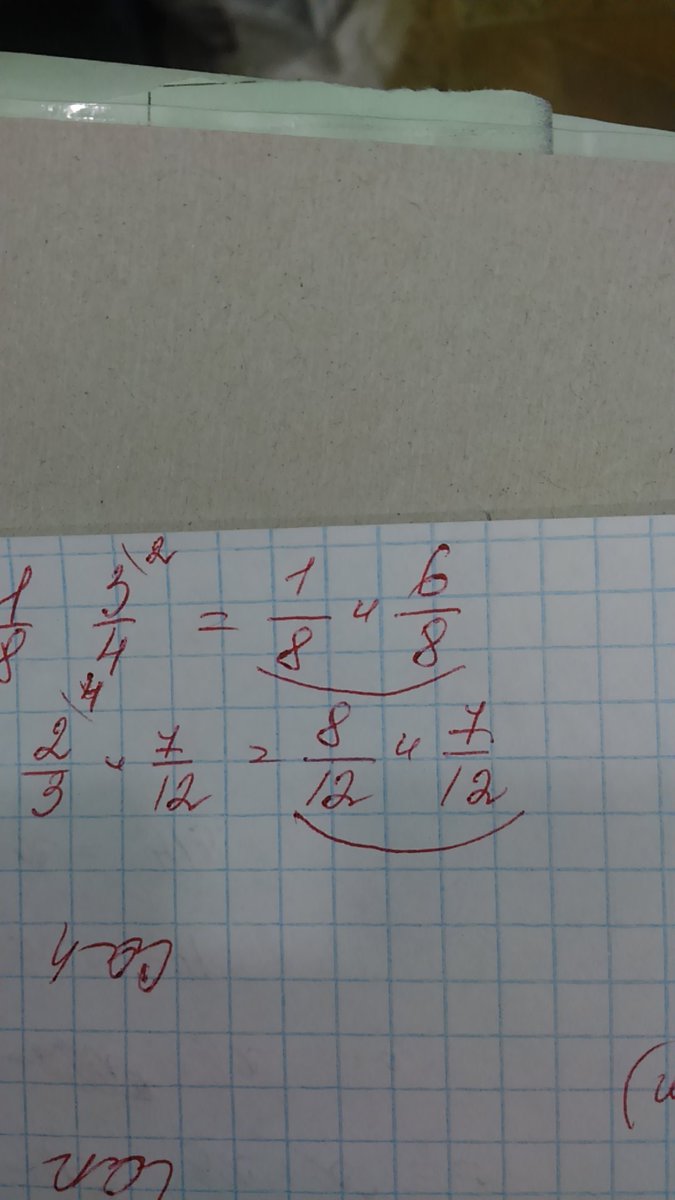 1/8 3/4 \2 = 1/8 и 6/8
2/3 \4 и 7/12 = 8/12 и 7/12